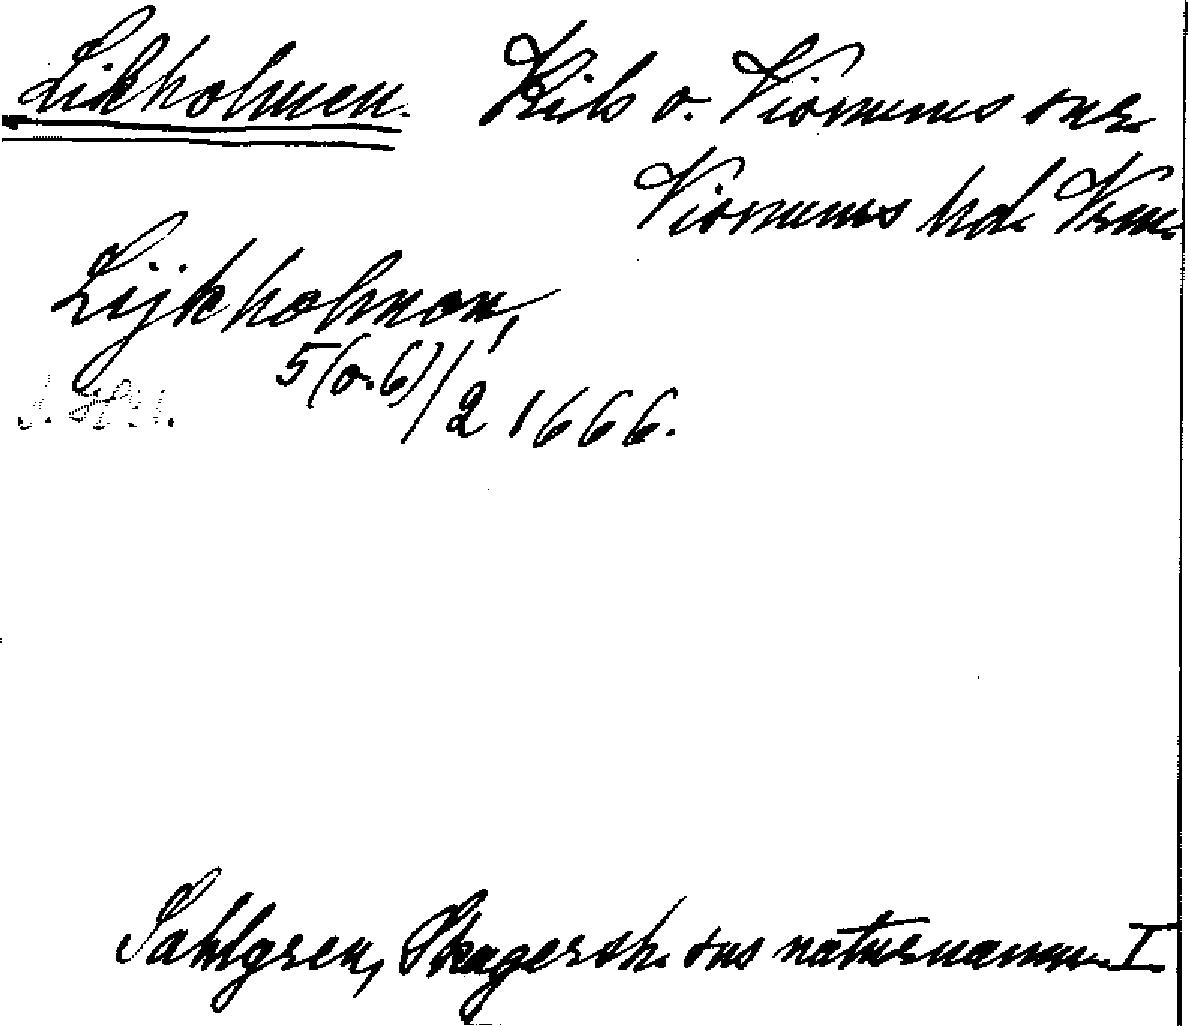 Likholmen. Kils o. Visnums snr
Visnums hd. Vrm.
Lijkholmon,
5(o.6)/2 1666.
Sahlgren, Skagersh. sns naturnamn I